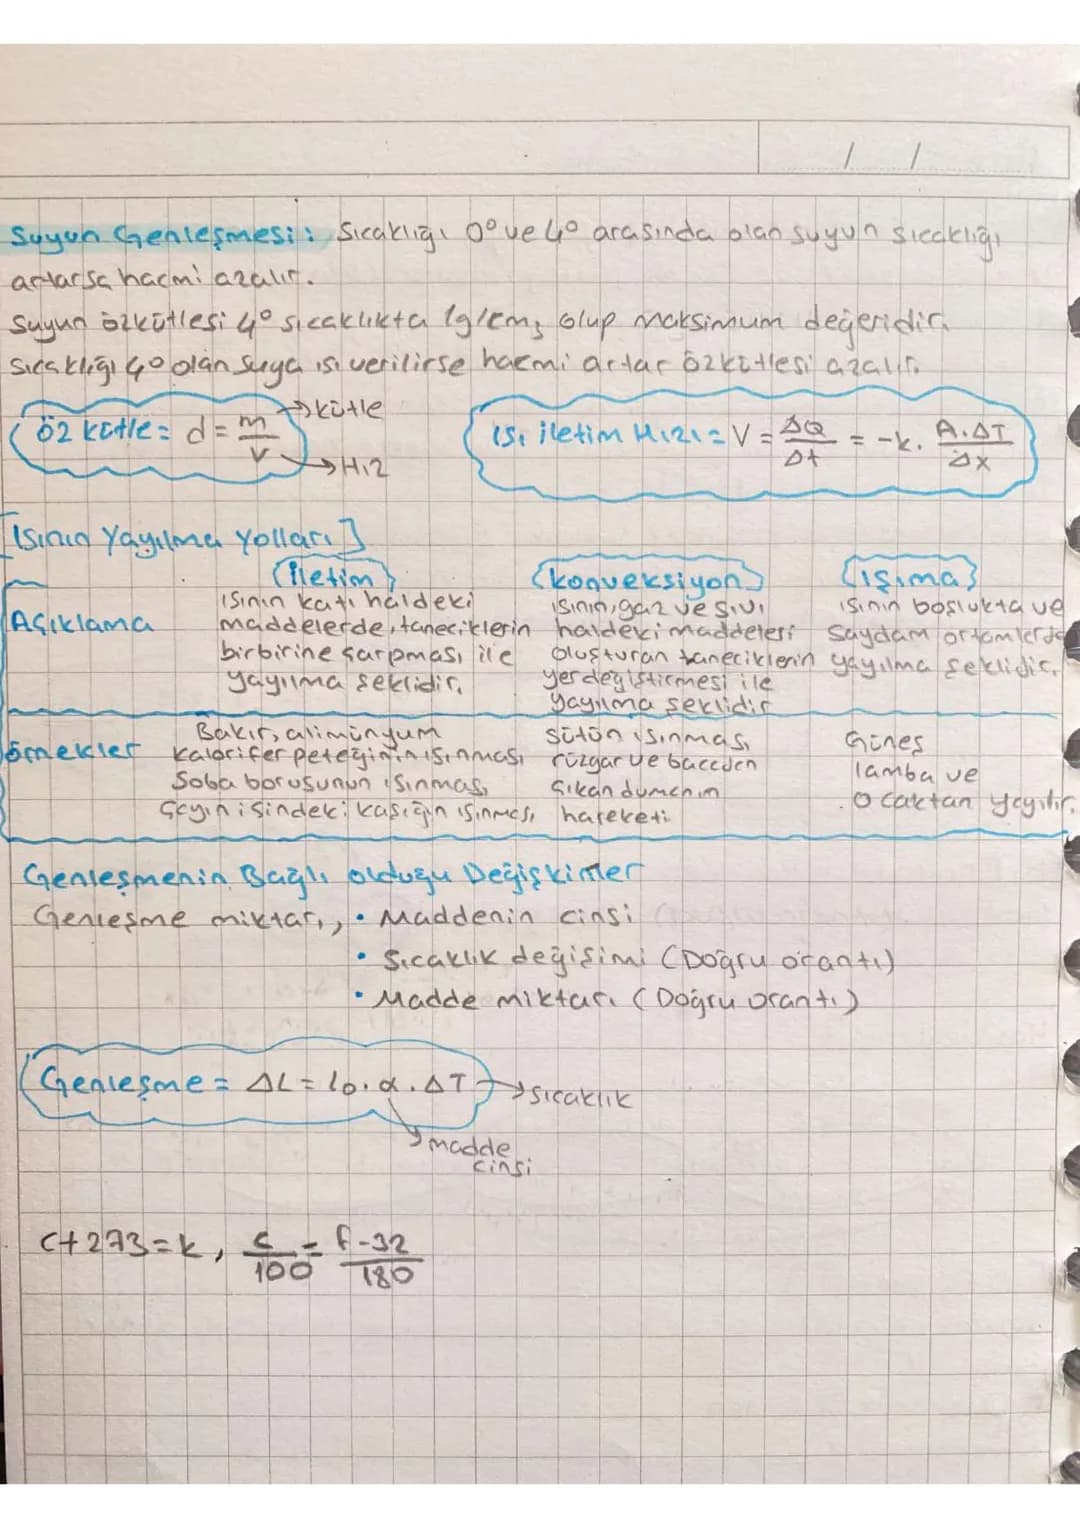 / /
Suyun Genleşmesi: Sıcaklığı 0° ve 4° arasında olan suyun sıcaklığı
artarsa hacmi azalır.
Suyun özkütlesi 4° sıcaklıkta 1g/cm₃ olup maksimum değeridir.
Sıcaklığı 4° olan suya ısı verilirse hacmi artar özkütlesi azalır.
öz kütle = d = m/v → kütle → Hız
ısı iletim Hızı = V = ΔQ/Δt = -k. A.ΔT/Δx
[Isının Yayılma Yolları]
(İletim) (konveksiyon) (ışıma)
Açıklama
ısının katı haldeki
maddelerde, taneciklerin
birbirine çarpması ile
yayılma şeklidir.
ısının, gaz ve sıvı
haldeki maddeleri
oluşturan taneciklerin
yerdeğiştirmesi ile
yayılma şeklidir
ısının boşlukta ve
saydam ortamlarda
yayılma şeklidir.
örnekler
Bakır, alimünyum
kalorifer peteğinin ısınması
Soba borusunun ısınması
Çayın içindeki kaşığın ısınması
sütün ısınması
rüzgar ve bacadan
çıkan dumanın
hareketi
Güneş
lamba ve
ocaktan yayılır.
Genleşmenin Bağlı olduğu Değişkenler
Genleşme miktarı, • Maddenin cinsi
• Sıcaklık değişimi (Doğru orantı)
• Madde miktarı (Doğru orantı)
Genleşme = ΔL = l0.α.ΔT → sıcaklık
madde
cinsi
c+273=k, c/100 = f-32/180